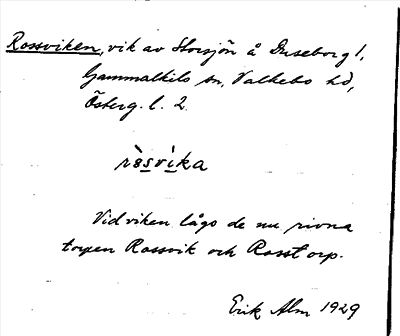 Rossviken, vik av Storsjön å Duseborg 1,
Gammalkils sn, Valkebo hd,
Österg. l. 2.
ròsvìka
Vid viken lågo de nu rivna
torpen Rossvik och Rosstorp.
Erik Alm 1929